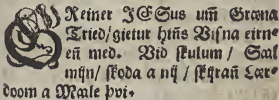 GReiner JESus um̃ Græna
Tried/gietur hin̄s Visna eirn-
en̄ med. Vid skulum / Sæl
mijn/ skoda a ny / skyran Lær-
doom a Mæle þvi.